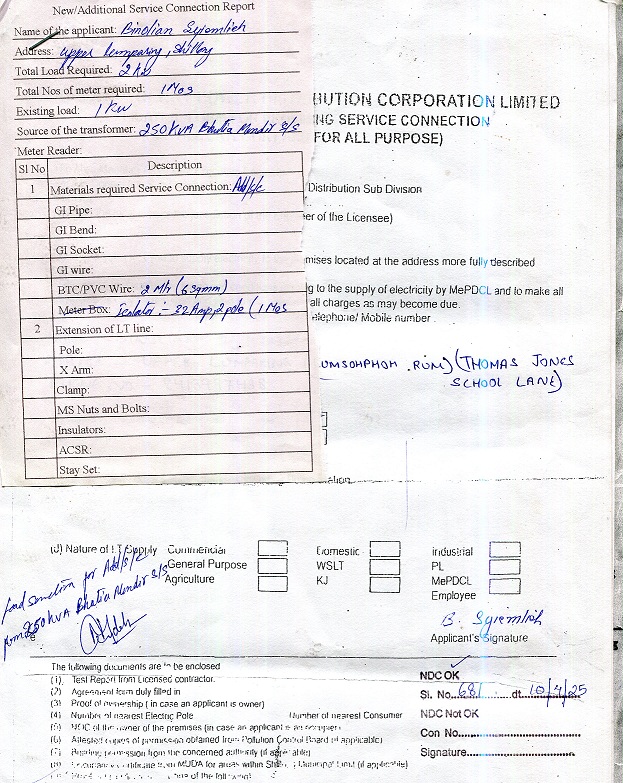 New/Additional Service Connection Report
Name of the applicant: Binolian Syiemlieh
Address: upper lumparing, Shillong
Total Load Required: 2 kw
Total Nos of meter required: 1 Nos
Existing load: 1 KW
Source of the transformer: 250 KVA Bhatia Mandir S/S
Meter Reader:
Sl No Description
1 Materials required Service Connection: Add/s/c
GI Pipe:
GI Bend:
GI Socket:
GI wire:
BTC/PVC Wire: 2 Mtr (6 sqmm)
Meter Box: Isolator :- 32 Amp, 2 pole (1 Nos
2 Extension of LT line:
Pole:
X Arm:
Clamp:
MS Nuts and Bolts:
Insulators:
ACSR:
Stay Set:
BUTION CORPORATION LIMITED
NG SERVICE CONNECTION
FOR ALL PURPOSE)
Distribution Sub Division
er of the Licensee)
mises located at the address more fully described
g to the supply of electricity by MePDCL and to make all
all charges as may become due.
elephone/ Mobile number
UMSOHPHOH .RUM) (THOMAS JONES
SCHOOL LANE)
(J) Nature of LT Supply Commercial Domestic Industrial
General Purpose WSLT PL
Agriculture KJ MePDCL
Employee
load sanction for Add/s/c
from 250 KVA Bhatia Mandir S/S
B. Syiemlieh
Applicant's Signature
The following documents are to be enclosed
(1). Test Report from Licensed contractor.
(2) Agreement form duly filled in
(3) Proof of ownership ( in case an applicant is owner)
(4) Number of nearest Electric Pole Number of nearest Consumer
(5) NOC of the owner of the premises (in case an applicant is an occupier)
(6) Attested copies of permission obtained from Pollution Control Board (if applicable)
(7) Building permission from the concerned authority (if applicable)
(8) Occupancy certificate from MUDA for areas within Shillong Municipal Limit (if applicable)
NDC OK
Sl. No. 681 dt. 10/4/25
NDC Not OK
Con No.
Signature